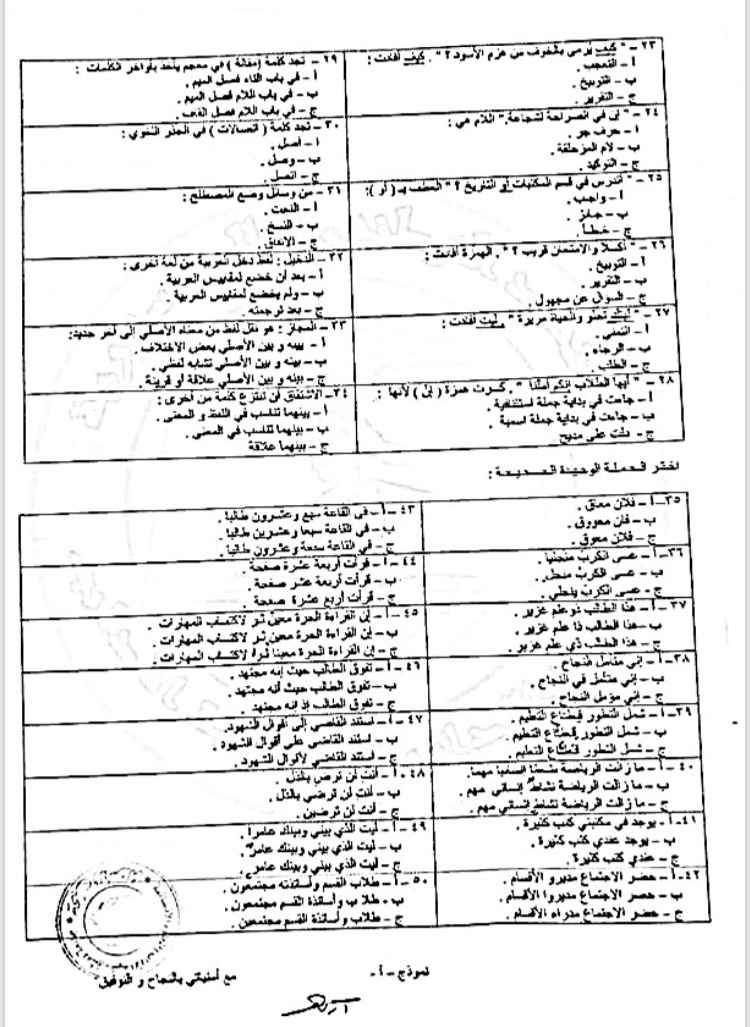 ٢٣- " كيف يُرمى بالخوف من عزم الأسود ؟ " . كيف أفادت :
أ - التعجب .
ب - التوبيخ .
ج - التقرير .
٢٤- " إنّ في الصراحة لشجاعة." اللام هي :
أ - حرف جر .
ب - لام المزحلقة .
ج - التوكيد .
٢٥- " أتدرس في قسم المكتبات أو التاريخ ؟ " العطف بـ ( أو ):
أ - واجب .
ب - جائز .
ج - خطأ .
٢٦- " أكسلاً والامتحان قريب ؟ " . الهمزة أفادت :
أ - التوبيخ .
ب - التقرير .
ج - السؤال عن مجهول .
٢٧- " ليتك تحلو والحياة مريرة " . ليت أفادت :
أ - التمني .
ب - الرجاء .
ج - الطلب .
٢٨- " أيها الطلاب إنكم أملنا " . كسرت همزة ( إنّ ) لأنها :
أ - جاءت في بداية جملة استئنافية .
ب - جاءت في بداية جملة اسمية .
ج - دلت على مديح
٢٩- تجد كلمة ( مقالة ) في معجم يأخذ بأواخر الكلمات :
أ - في باب التاء فصل الميم .
ب - في باب اللام فصل الميم .
ج - في باب اللام فصل القاف .
٣٠- تجد كلمة ( اتصالات ) في الجذر اللغوي :
أ - أصل .
ب - وصل .
ج - اتصل .
٣١- من وسائل وضع المصطلح :
أ - النحت .
ب - النسخ .
ج - الاتفاق .
٣٢- الدخيل : لفظ دخل العربية من لغة أخرى :
أ - بعد أن خضع لمقاييس العربية .
ب - ولم يخضع لمقاييس العربية .
ج - بعد ترجمته .
٣٣- المجاز : هو نقل لفظ من معناه الأصلي إلى آخر جديد:
أ - بينه و بين الأصلي بعض الاختلاف .
ب - بينه و بين الأصلي تشابه لفظي .
ج - بينه و بين الأصلي علاقة أو قرينة .
٣٤- الاشتقاق أن تنتزع كلمة من أخرى :
أ - بينهما تناسب في اللفظ و المعنى .
ب - بينهما تناسب في المعنى .
ج - بينهما علاقة
اختر الجملة الوحيدة الصحيحة :
٣٥-أ - فلان معاق .
ب - فلان معووق .
ج - فلان معوق .
٣٦-أ - عسى الكرب منجلياً .
ب - عسى الكرب منجل .
ج - عسى الكرب ينجلي .
٣٧-أ - هذا الطالب ذو علم غزير .
ب - هذا الطالب ذا علم غزير .
ج - هذا الطالب ذي علم غزير .
٣٨-أ - إني متأمل النجاح .
ب - إني متأمل في النجاح .
ج - إني مؤمل النجاح .
٣٩-أ - شمل التطور قطاع التعليم .
ب - شمل التطور قطاع التعليم .
ج - شمل التطور قطاع التعليم .
٤٠-أ - ما زالت الرياضة نشطاً إنسانياً مهماً.
ب - ما زالت الرياضة نشاطٌ إنساني مهم .
ج - ما زالت الرياضة نشاط إنساني مهم .
٤١-أ - يوجد في مكتبتي كتب كثيرة .
ب - يوجد عندي كتب كثيرة .
ج - عندي كتب كثيرة .
٤٢-أ - حضر الاجتماع مديرو الأقسام .
ب - حضر الاجتماع مديروا الأقسام .
ج - حضر الاجتماع مدراء الأقسام .
٤٣-أ - في القاعة سبع وعشرون طالباً .
ب - في القاعة سبعا وعشرين طالباً .
ج - في القاعة سبعة وعشرون طالباً .
٤٤-أ - قرأت أربعة عشرة صفحة .
ب - قرأت أربعة عشر صفحة .
ج - قرأت أربع عشرة صفحة .
٤٥-أ - إن القراءة الحرة معينٌ ثر لاكتساب المهارات .
ب - إن القراءة الحرة معين ثر لاكتساب المهارات .
ج - إن القراءة الحرة معينا ثرا لاكتساب المهارات .
٤٦-أ - تفوق الطالب حيث إنه مجتهد .
ب - تفوق الطالب حيث أنه مجتهد .
ج - تفوق الطالب إذ إنه مجتهد .
٤٧-أ - استند القاضي إلى أقوال الشهود.
ب - استند القاضي على أقوال الشهود .
ج - استند القاضي لأقوال الشهود .
٤٨-أ - أنت لن ترضي بالذل .
ب - أنت لن ترضي بالذل .
ج - أنت لن ترضين .
٤٩-أ - ليت الذي بيني وبينك عامراً .
ب - ليت الذي بيني وبينك عامرٌ .
ج - ليت الذي بيني وبينك عامرٍ .
٥٠-أ - طلاب القسم وأساتذته مجتمعون .
ب - طلاب وأساتذة القسم مجتمعون .
ج - طلاب وأساتذة القسم مجتمعين .
نموذج - أ -
مع أمنياتي بالنجاح و التوفيق